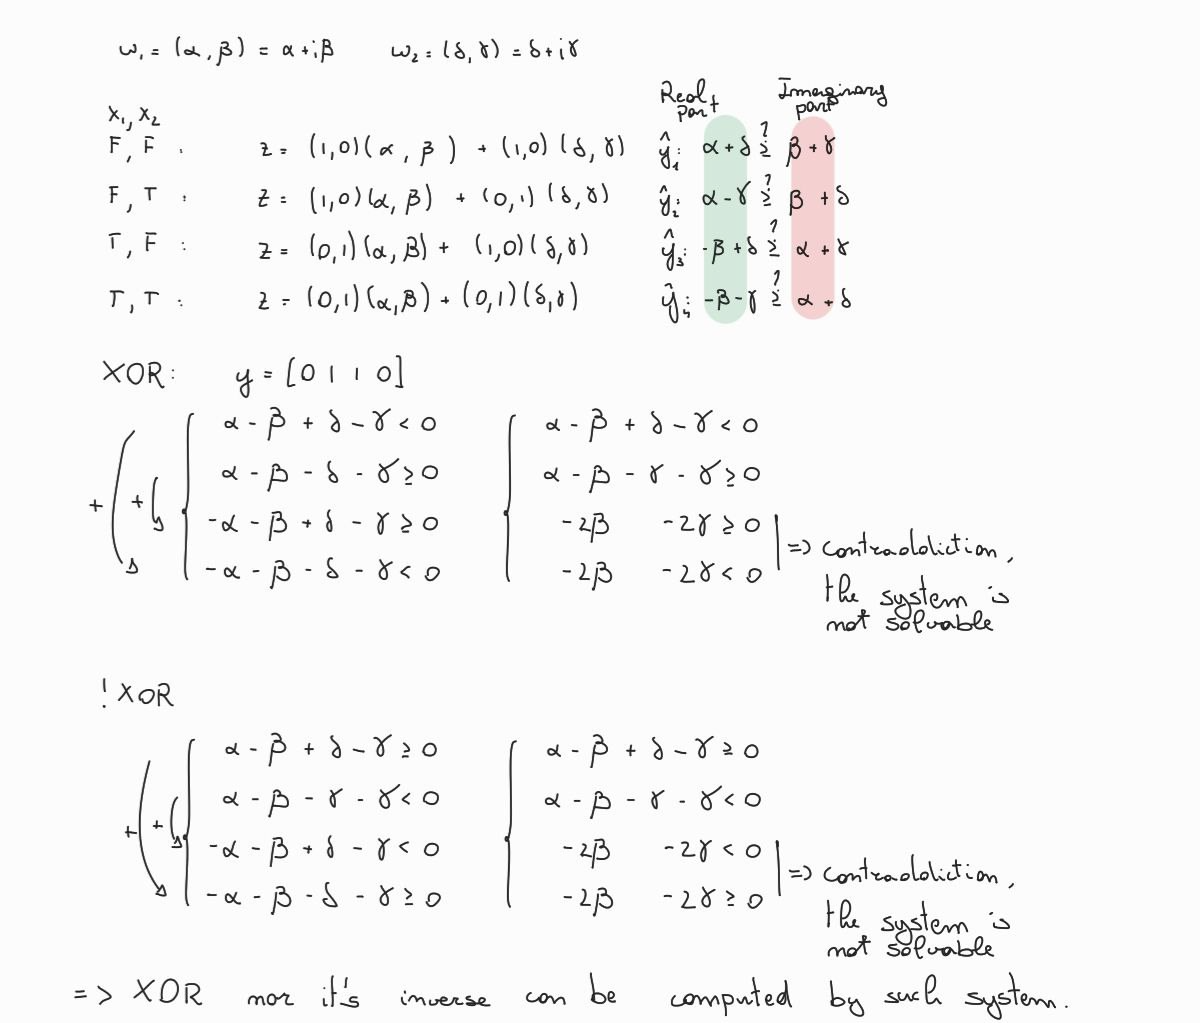 ω₁ = (α, β) = α + iβ ω₂ = (δ, γ) = δ + iγ
Real part Imaginary part
x₁, x₂
F, F : z = (1,0)(α, β) + (1,0)(δ, γ) ŷ₁: α + δ ≥? β + γ
F, T : z = (1,0)(α, β) + (0,1)(δ, γ) ŷ₂: α - γ ≥? β + δ
T, F : z = (0,1)(α, β) + (1,0)(δ, γ) ŷ₃: -β + δ ≥? α + γ
T, T : z = (0,1)(α, β) + (0,1)(δ, γ) ŷ₄: -β - γ ≥? α + δ
XOR: y = [0 1 1 0]
α - β + δ - γ < 0 α - β + δ - γ < 0
α - β - δ - γ ≥ 0 α - β - γ - γ ≥ 0
+ + -α - β + δ - γ ≥ 0 -2β -2γ ≥ 0
-α - β - δ - γ < 0 -2β -2γ < 0
=> contradiction,
the system is
not solvable
! XOR
α - β + δ - γ ≥ 0 α - β + δ - γ ≥ 0
α - β - γ - γ < 0 α - β - γ - γ < 0
+ + -α - β + δ - γ < 0 -2β -2γ < 0
-α - β - δ - γ ≥ 0 -2β -2γ ≥ 0
=> contradiction,
the system is
not solvable
=> XOR nor it's inverse can be computed by such system.